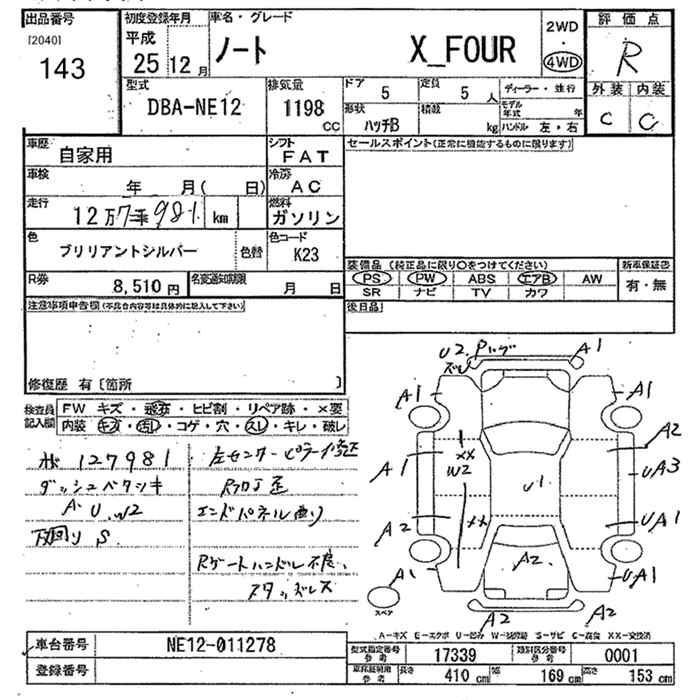 出品番号 初度登録年月 車名・グレード 評価点
[2040] 平成 ノート X_FOUR 2WD・4WD R
143 25 12月
型式 排気量 ドア 5 定員 5人 ディーラー・並行 外装 内装
DBA-NE12 1198 CC 形状 ハッチB 積載 kg モデル年式 年 C C
ハンドル 左・右
車歴 自家用 シフト FAT セールスポイント(正常に機能するものに限ります)
車検 年 月( 日) 冷房 AC
走行 12万7千981 km 燃料 ガソリン
色 ブリリアントシルバー 色替 色コード K23
装備品(純正品に限り○をつけてください) 新車保証書
R券 8,510円 名変通知期限 月 日 PS PW ABS エアB AW 有・無
SR ナビ TV カワ
注意事項申告欄(不具合内容等は具体的に記入して下さい) 後日品
修復歴 有〔箇所 〕
検査員記入欄 FW キズ・飛石・ヒビ割・リペア跡・×要
内装 キズ・汚れ・コゲ・穴・スレ・キレ・破レ
127981 左センターピラー修正
ダッシュベタツキ
A U W2 エンドパネル曲り
下回り S
Rゲートハンドル不良、
スタッドレス
U2 A1
ズレ
A1 A1
A1 XX W2 A2
U1 UA3
A2 XX UA1
A1 A2 UA1
スペア A2 A2
A-キズ E-エクボ U-凹み W-波修跡 S-サビ C-腐食 XX-交換済
車台番号 NE12-011278 型式指定番号 参考 17339 類別区分番号 参考 0001
登録番号 車体証明用 参考 長さ 410 cm 幅 169 cm 高さ 153 cm